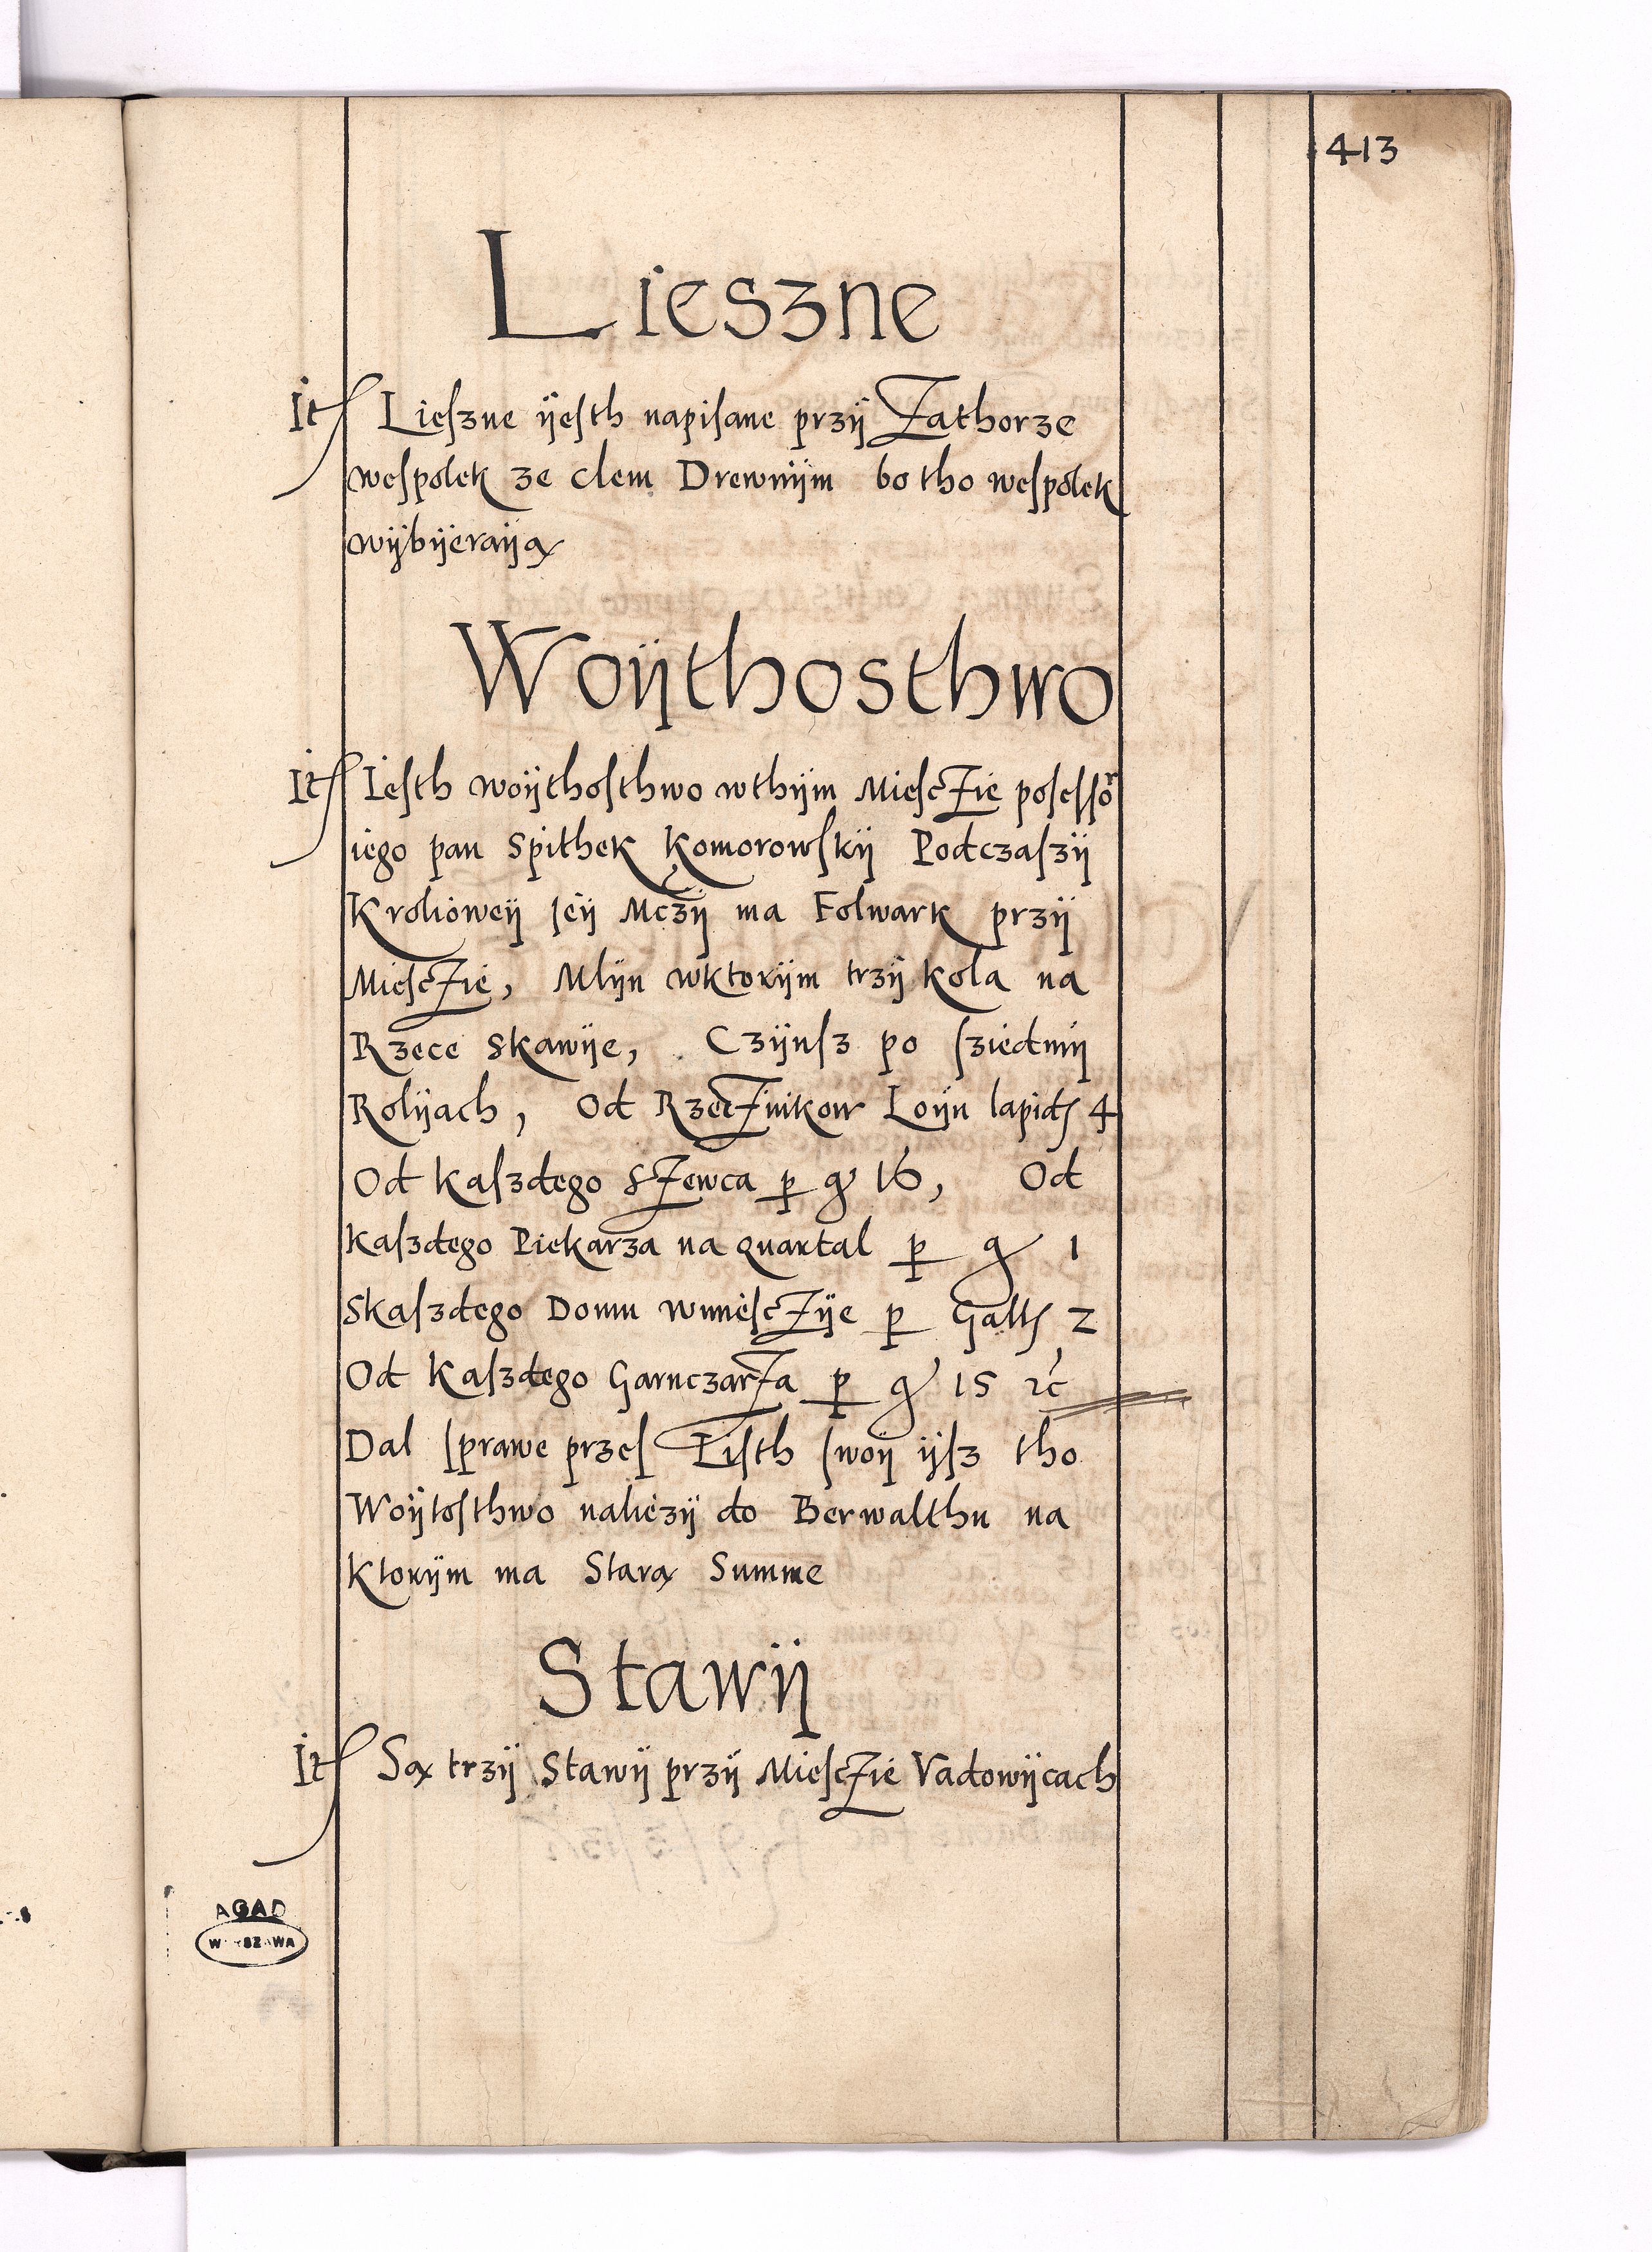 413
Lieszne
It Lieszne ÿesth napisane przÿ Zathorze
wespolek ze clem Drewnÿm bo tho wespolek
wÿbÿeraÿą
Woÿthosthwo
It Iesth woÿthosthwo wthÿm Miesczie posessor
iego pan Spithek Komorowskÿ Podczaszÿ
Krolioweÿ Jeÿ Mczÿ ma Folwark przÿ
Miesczie, Mlÿn wktorÿm trzÿ kola na
Rzece Skawÿe, Czÿnsz po sziedmÿ
Rolÿach, Od Rzecznikow Loÿu lapid 4
Od kaszdego Szewca p gr 16, Od
kaszdego Piekarza na quartal p gr 1
Skaszdego Domu wmiesczÿe p Gall 2
Od kaszdego Garnczarza p gr 15 rc
Dal sprawe przes List swoÿ ÿsz tho
Woÿtosthwo naliezÿ do Berwalthu na
ktorÿm ma Starą Summe
Stawÿ
It Są trzÿ Stawÿ przÿ Miesczie Vadowÿcach
AGAD
WARSZAWA